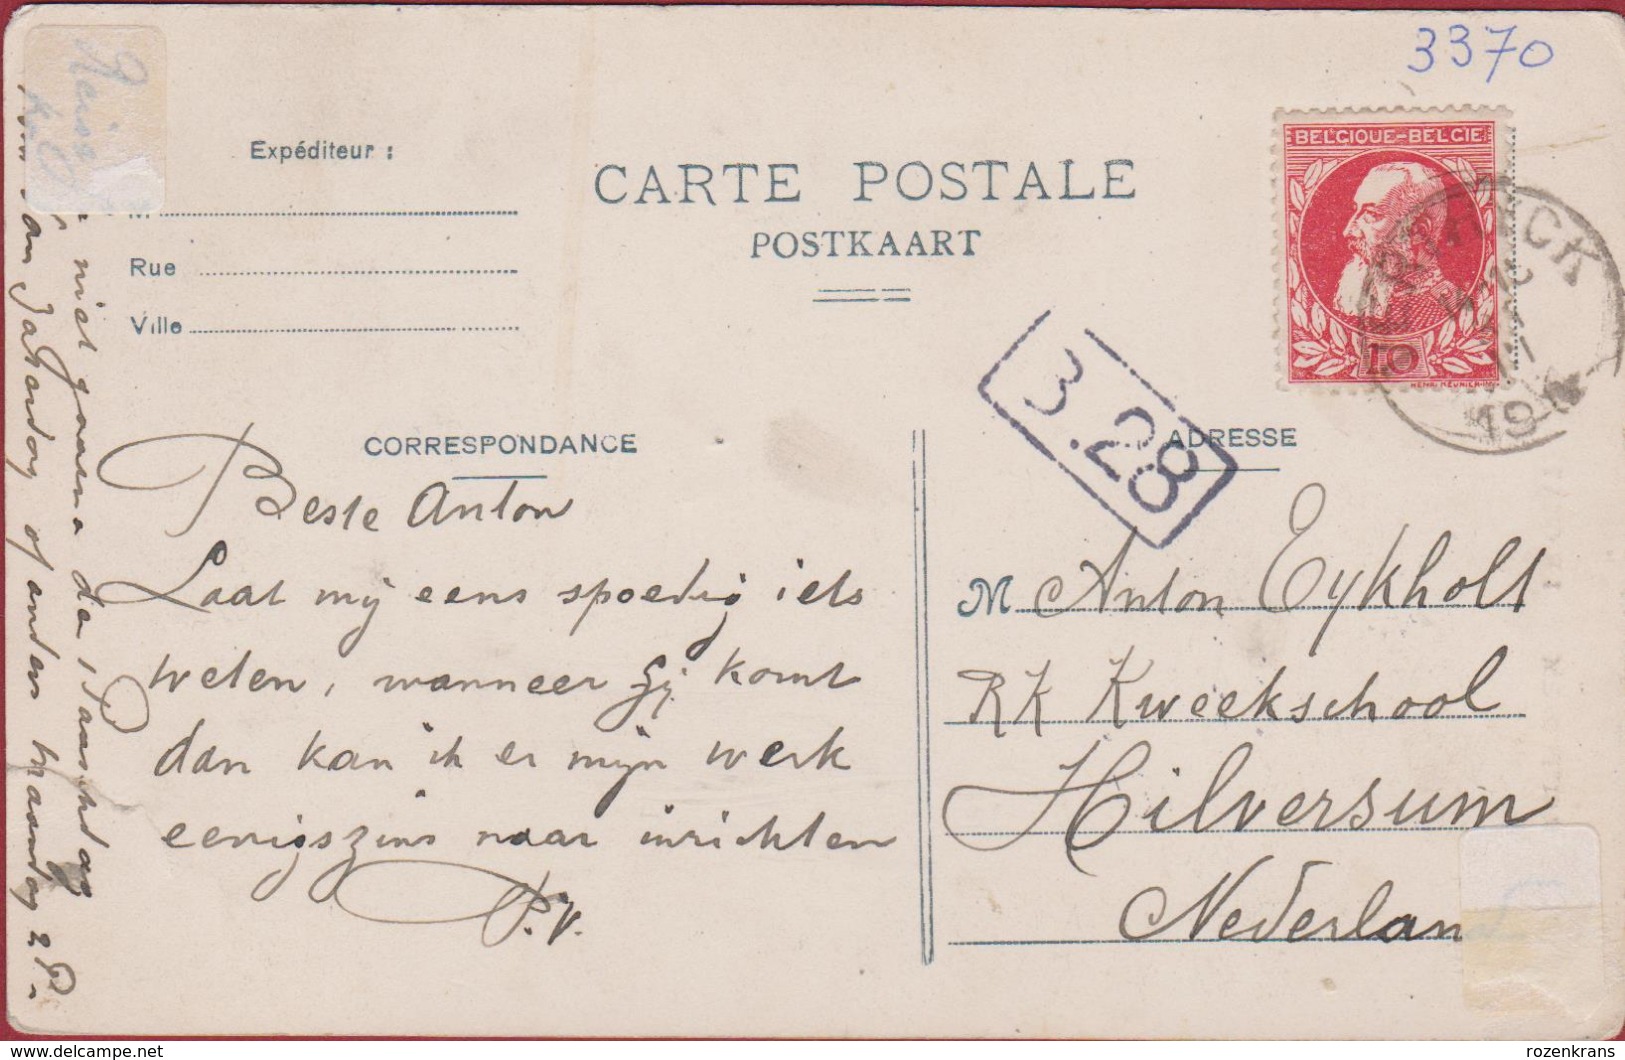 3370
BELGIQUE-BELGIE
10
HENRI MEUNIER INV.
19
Expéditeur :
CARTE POSTALE
POSTKAART
M
Rue
Ville
3.28
CORRESPONDANCE
ADRESSE
Beste Anton
Laat mij eens spoedig iets
weten, wanneer gij komt
dan kan ik er mijn werk
eenigszins naar inrichten
P.V.
M Anton Eykholt
RK Kweekschool
Hilversum
Nederlan
niet gaarne de Paaschdag
Zaterdag of anders maandag 2 P.
delcampe.net
rozenkrans